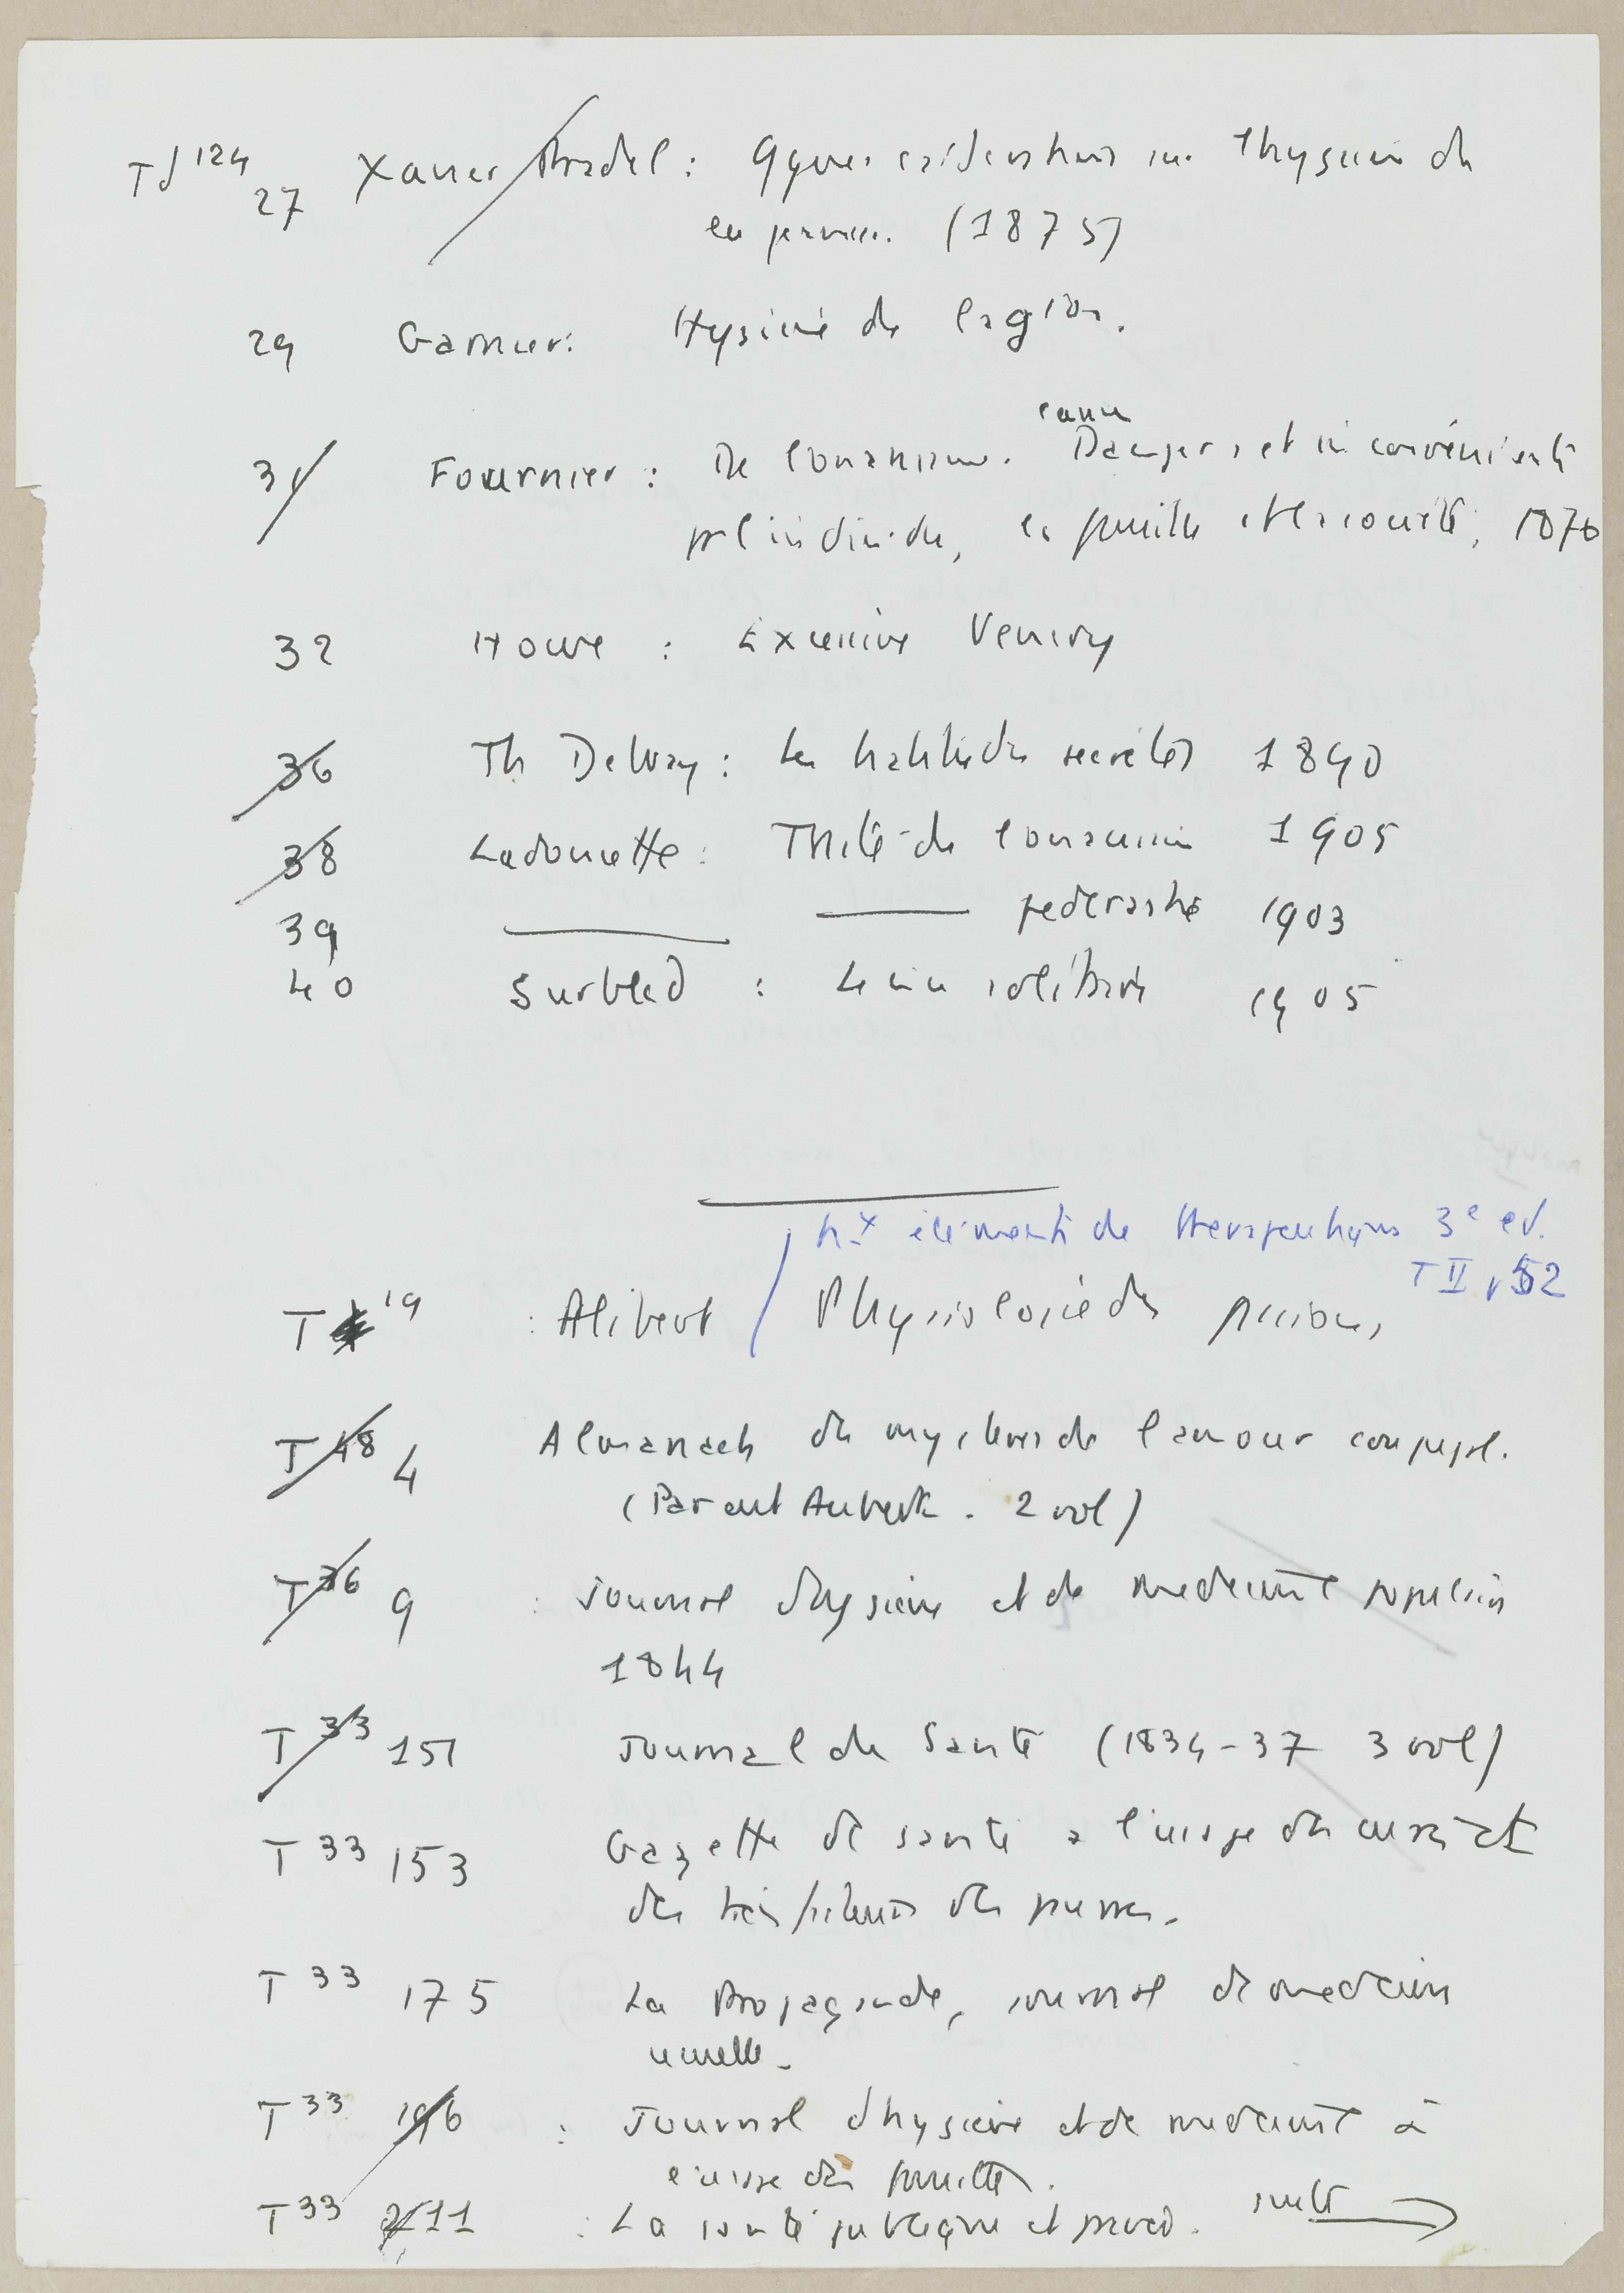 Td 124 27 Xavier Pradel : Qques considérations sur l'hygiène de
(1875)
29 Garnier : Hygiène de la gion.
31 Fournier : De l'onanisme. causes Dangers et inconvénients
pr l'individu, la famille et la société, 1876
32 Howe : Excessive Venery
36 Th Debray : Les habitudes secrètes 1840
38 Ladoucette : Traité de l'onanisme 1905
39 ——— ——— pederastie 1903
40 Surbled : Le vice solitaire 1905
nx éléments de therapeutique 3e ed.
T II, 52
T 19 : Alibert / Physiologie des passions
T 48 4 Almanach des mystères de l'amour conjugal.
(Parent Aubert. 2 vol)
T 36 9 : Journal d'hygiène et de medecine populaire
1844
T 33 151 Journal de Santé (1834-37 3 vol)
T 33 153 Gazette de santé à l'usage des curés et
des des pauvres.
T 33 175 La Propagande, journal de medecine
usuelle.
T 33 196 : Journal d'hygiène et de medecine à
l'usage des familles.
T 33 211 : La santé publique et privée. suite →